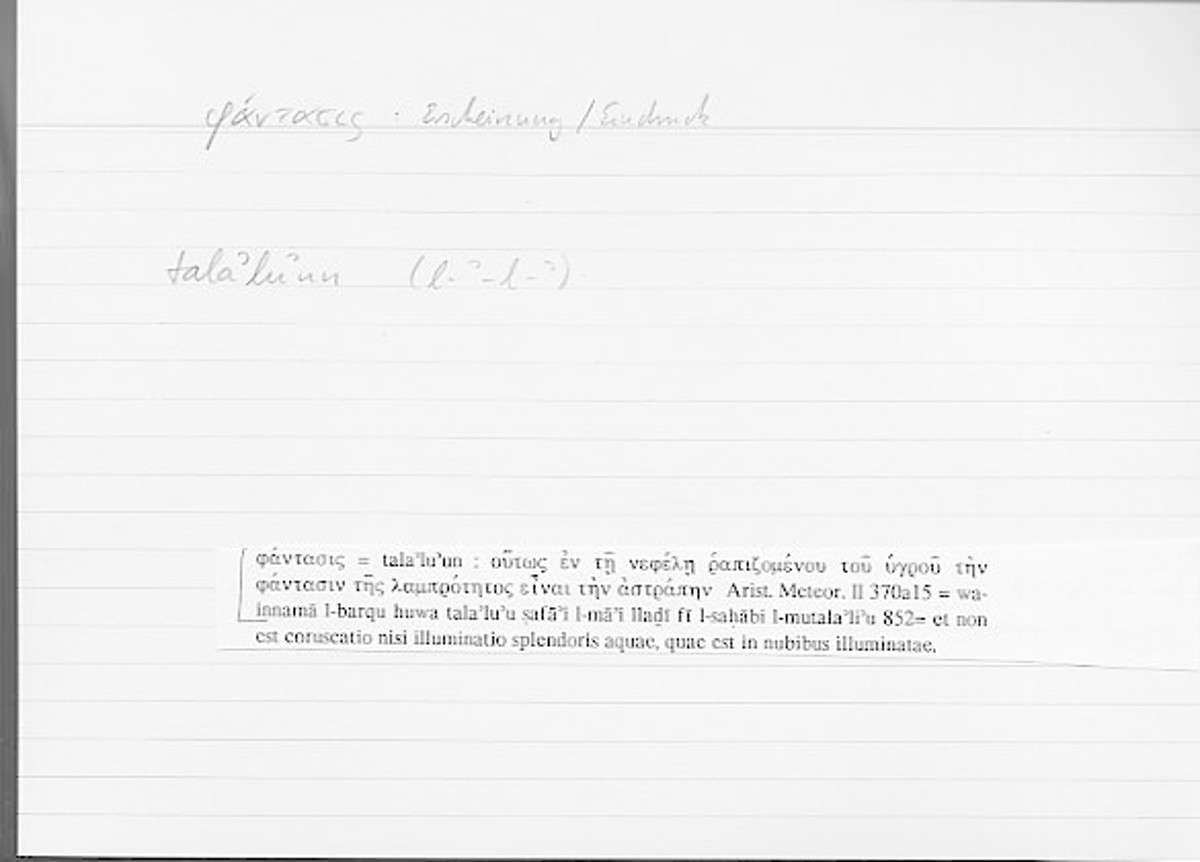 φάντασις : Erscheinung / Eindruck
talaʾluʾun (l-ʾ-l-ʾ)
φάντασις = talaʾluʾun : οὕτως ἐν τῇ νεφέλῃ ῥαπιζομένου τοῦ ὑγροῦ τὴν
φάντασιν τῆς λαμπρότητος εἶναι τὴν ἀστράπην Arist. Meteor. II 370a15 = wa-
innamā l-barqu huwa talaʾluʾu ṣafāʾi l-māʾi llaḏī fī l-saḥābi l-mutalaʾliʾu 852= et non
est coruscatio nisi illuminatio splendoris aquae, quae est in nubibus illuminatae.